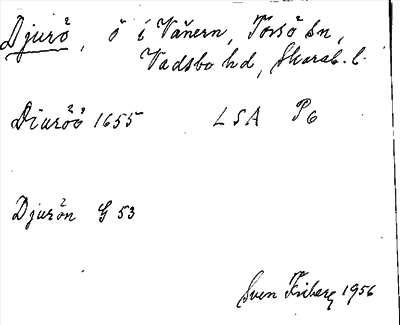 Djurö, ö i Vänern, Torsö sn,
Vadsbo hd, Skarab. l.
Diuröö 1655 LSA P6
Djurön G 53
Sven Friberg 1956